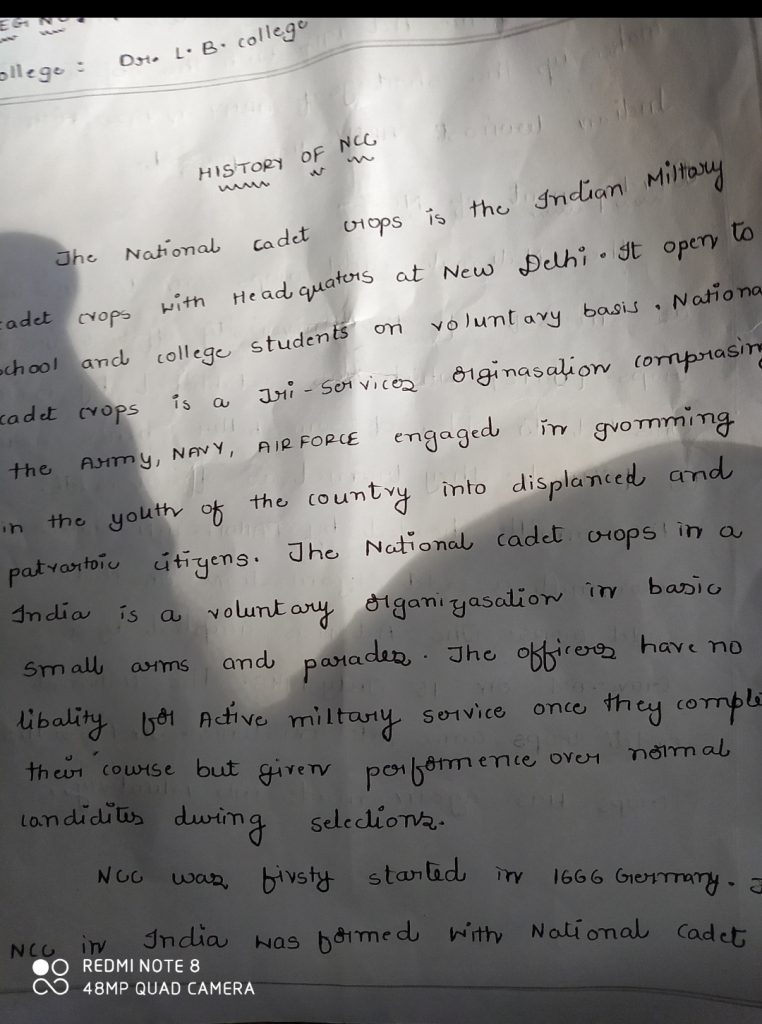 EG NO.
ollege : Dr. L. B. college
HISTORY OF NCC
The National cadet crops is the Indian Miltary
cadet crops with Head quaters at New Delhi. It open to
school and college students on voluntary basis. Nationa
cadet crops is a Tri-services orginasation comprasing
the Army, NAVY, AIR FORCE engaged in gromming
in the youth of the country into displanced and
patvartoic citizens. The National cadet crops in a
India is a voluntary organizasation in basic
small arms and parades. The officers have no
libality for Active miltary service once they comple
their course but given performence over normal
candidites during selections.
NCC was firsty started in 1666 Germany.
NCC in India was formed with National Cadet
REDMI NOTE 8
48MP QUAD CAMERA